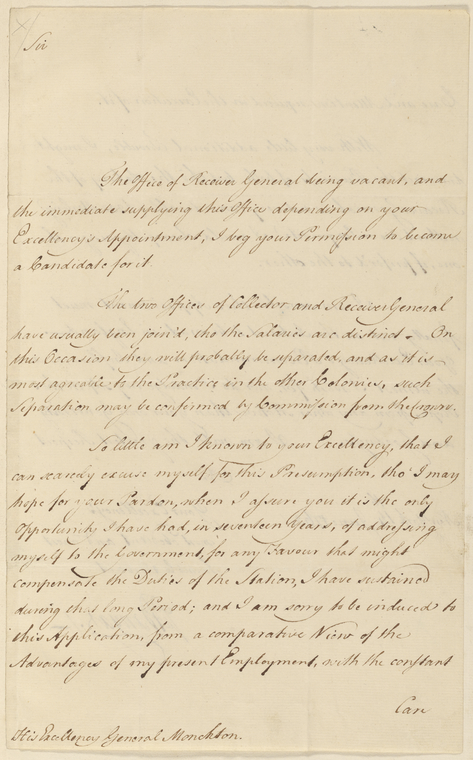 Sir
The Office of Receiver General being vacant, and
the immediate supplying this Office depending on your
Excellency's Appointment, I beg your Permission to become
a Candidate for it.
The two Offices of Collector and Receiver General
have usually been join'd, tho the Salaries are distinct. On
this Occasion they will probably be separated, and as it is
most agreable to the Practice in the other Colonies, such
Separation may be confirmed by Commission from the Crown.
So little am I known to your Excellency, that I
can scarcely excuse myself for this Presumption, tho' I may
hope for your Pardon, when I assure you it is the only
Opportunity I have had, in seventeen Years, of addressing
myself to the Government, for any Favour that might
compensate the Duties of the Station, I have sustained
during that long Period; and I am sorry to be induced to
this Application, from a comparative View of the
Advantages of my present Employment, with the constant
Care
His Excellency General Monckton.